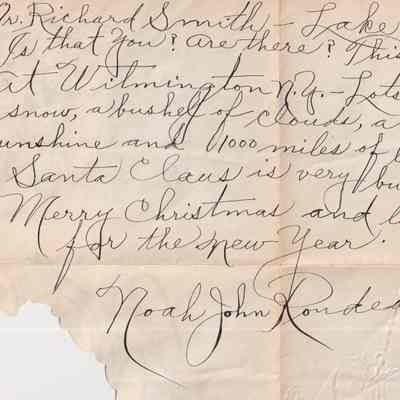 Dr. Richard Smith - Lake
Is that you? Are there? This
at Wilmington N.Y. - Lots
snow, a bushel of clouds, a
unshine and 1000 miles of
Santa Claus is very bu
Merry Christmas and l
for the New Year.
Noah John Rondea